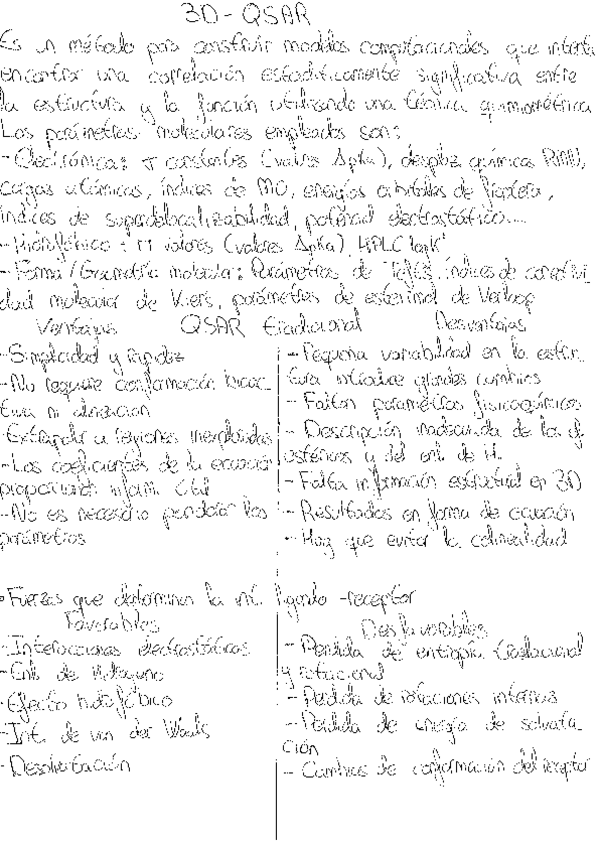 3D - QSAR
Es un método para construir modelos computacionales que intenta
encontrar una correlación estadísticamente significativa entre
la estructura y la función utilizando una técnica quimiométrica
Los parámetros moleculares empleados son:
- Electrónicos: σ constantes (valores ΔpKa), desplaz. químicos RMN,
cargas atómicas, índices de MO, energías orbitales de frontera,
índices de superdeslocalizabilidad, potencial electrostático...
- Hidrofóbico: π valores (valores ΔpKa), HPLC logK'
- Forma/Geometría molecular: Parámetros de Taft, índices de conectivi-
dad molecular de Kiers, parámetros de esterimol de Verloop
Ventajas QSAR tradicional Desventajas
- Simplicidad y rapidez
- No requiere conformación bioac-
tiva ni alineación
- Extrapolar a regiones inexploradas
- Los coeficientes de la ecuación
proporcionan inform. útil
- No es necesario ponderar los
parámetros
- Pequeña variabilidad en la estruc-
tura introduce grandes cambios
- Faltan parámetros fisicoquímicos
- Descripción inadecuada de los ef.
estéricos y del enl. de H.
- Falta información estructural en 3D
- Resultados en forma de ecuación
- Hay que evitar la colinealidad
• Fuerzas que determinan la int. ligando - receptor
Favorables
- Interacciones electrostáticas
- Enl. de hidrógeno
- Efecto hidrofóbico
- Int. de van der Waals
- Desolvatación
Desfavorables
- Perdida de entropía traslacional
y rotacional
- Perdida de rotaciones internas
- Perdida de energía de solvata-
ción
- Cambios de conformación del receptor